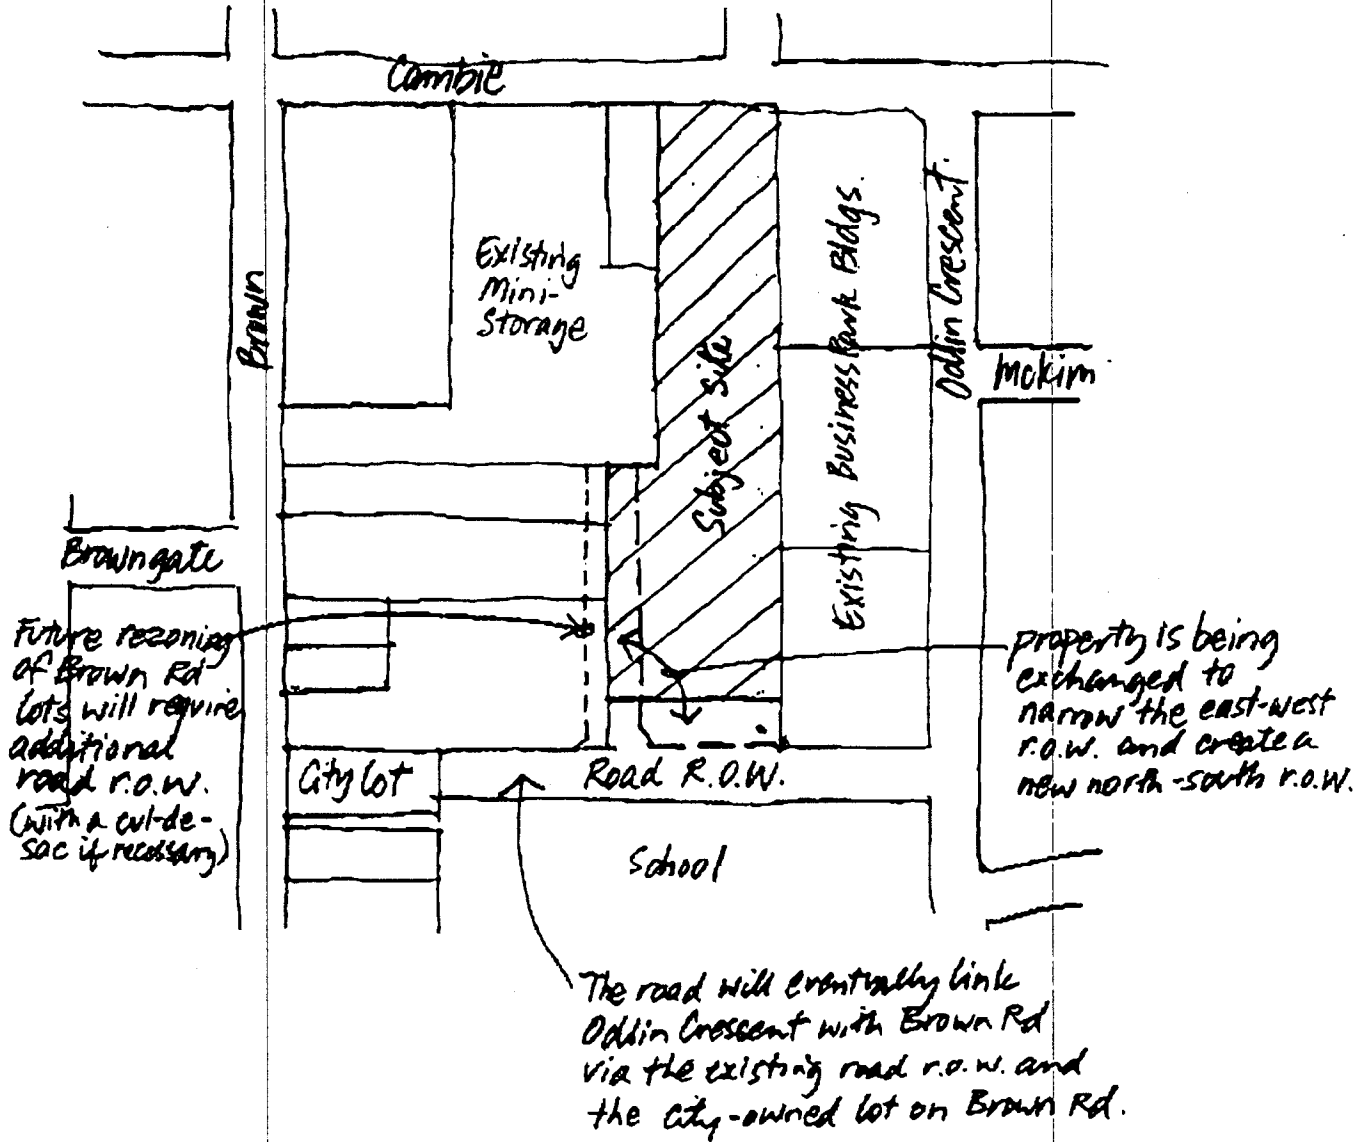 Cambie
Existing
Mini-
Storage
Brown
Subject Site
Existing Business Park Bldgs.
Odlin Crescent.
McKim
Browngate
Future rezoning
of Brown Rd
lots will require
additional
road r.o.w.
(with a cul-de-
sac if necessary)
property is being
exchanged to
narrow the east-west
r.o.w. and create a
new north-south r.o.w.
City lot
Road R.O.W.
School
The road will eventually link
Odlin Crescent with Brown Rd
via the existing road r.o.w. and
the city-owned lot on Brown Rd.